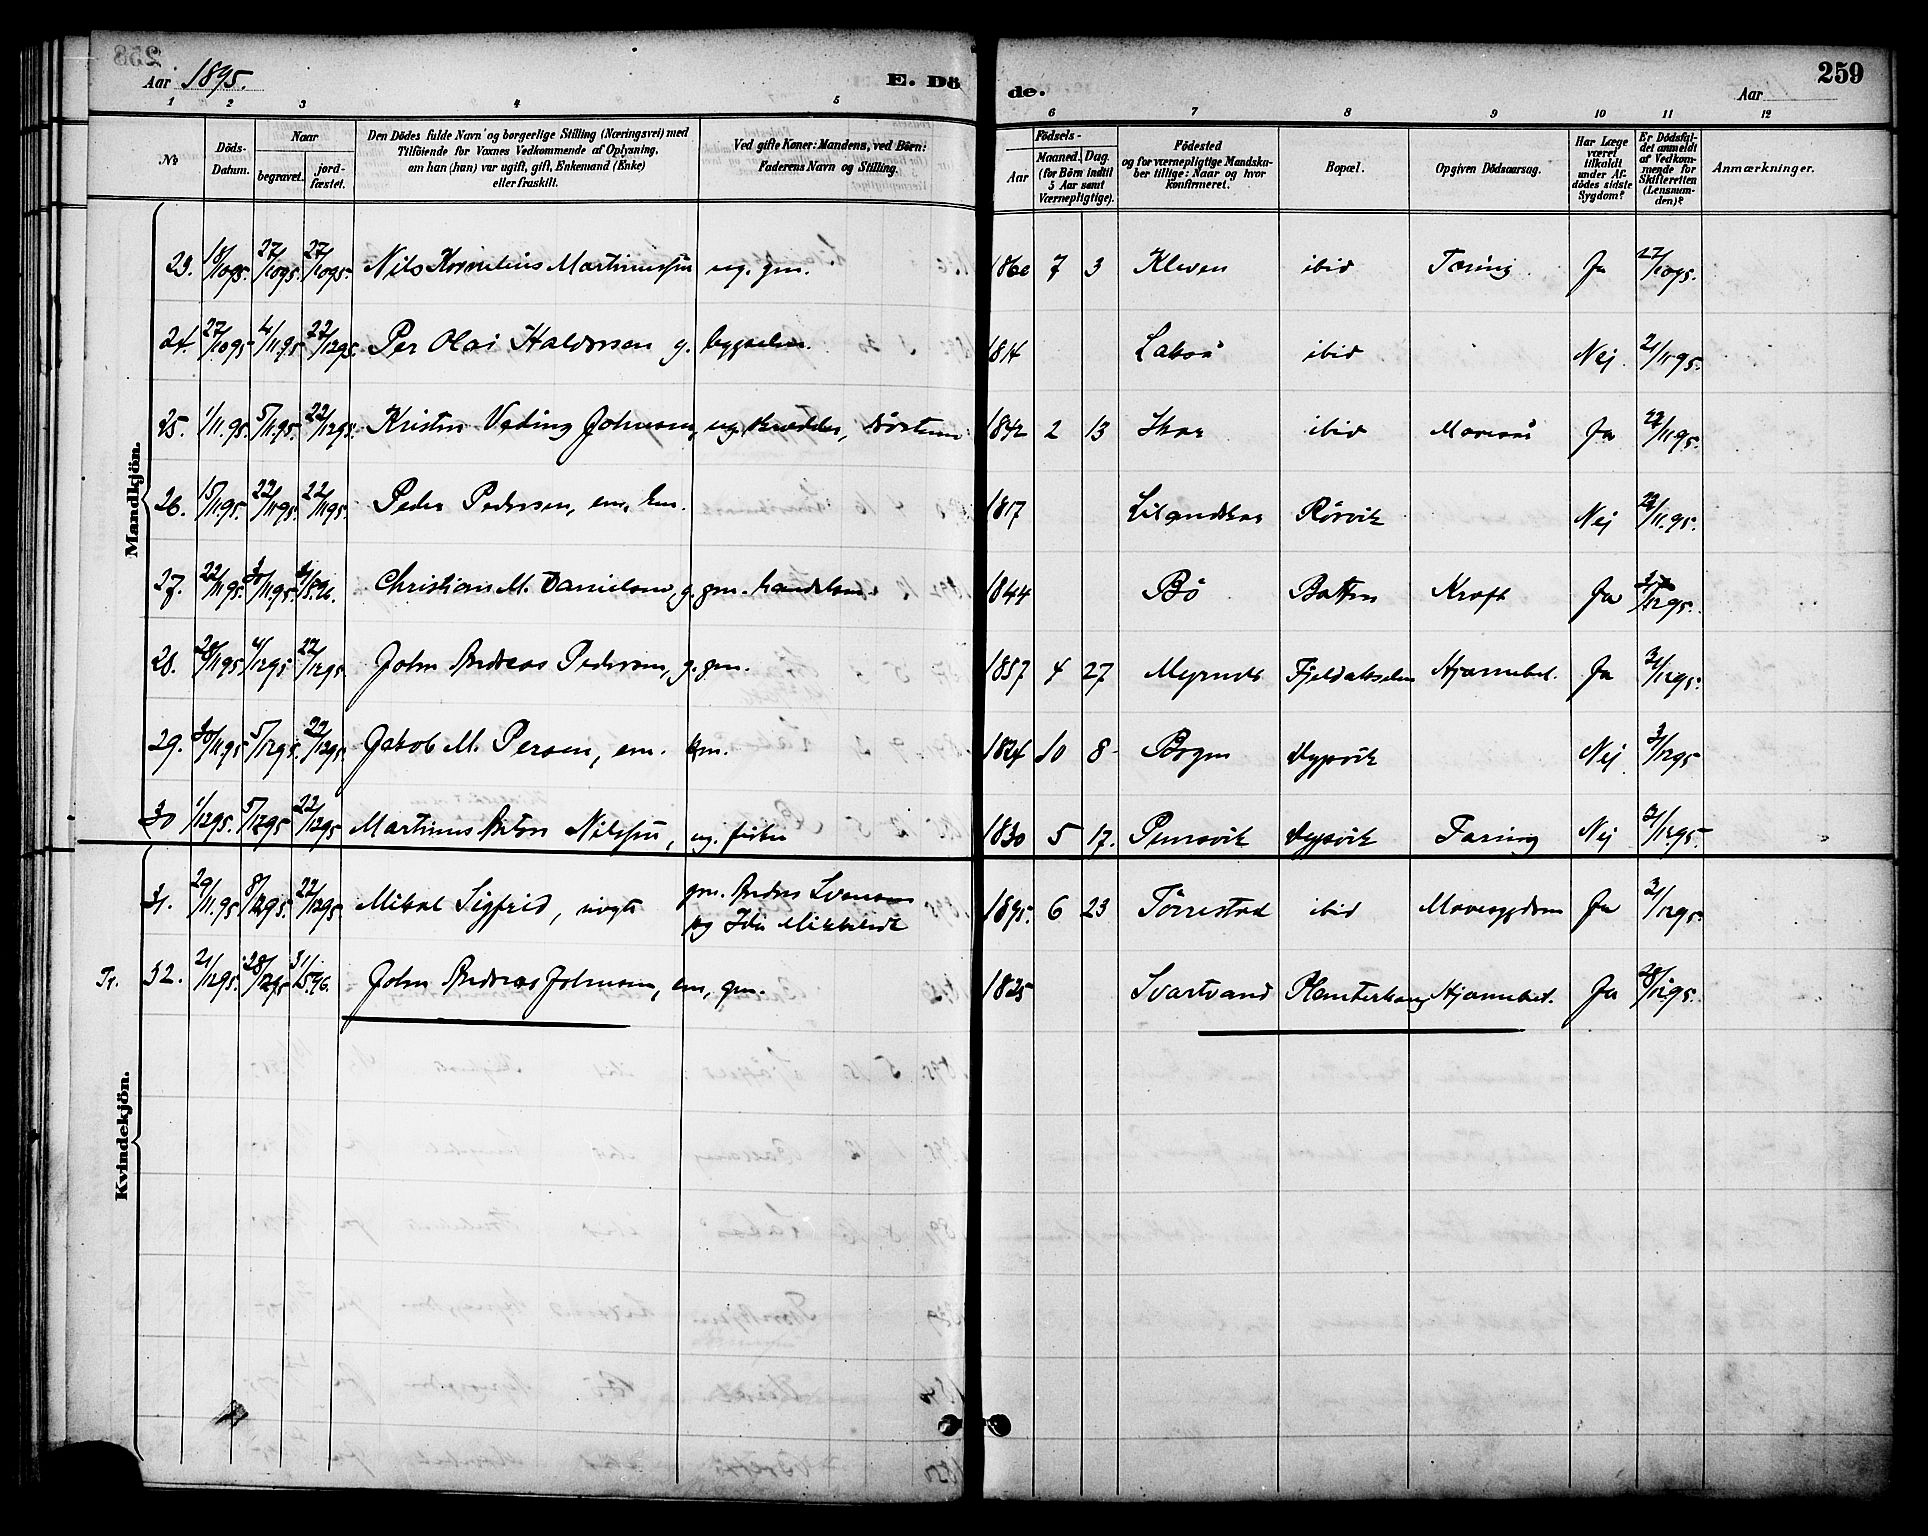 Aar 1895.
E. Dö
de.
Aar
259
1 2 3 4 5 6 7 8 9 10 11 12
No
Döds-
Datum.
Naar
begravet.
jord-
fæstet.
Den Dödes fulde Navn og borgerlige Stilling (Næringsvei) med
Tilföiende for Voxnes Vedkommende af Oplysning,
om han (hun) var ugift, gift, Enkemand (Enke)
eller fraskilt.
Ved gifte Koner: Mandens, ved Börn:
Faderens Navn og Stilling.
Födsels-
Aar
Maaned. Dag.
(for Börn indtil
5 Aar samt
Værnepligtige).
Födested
og for værnepligtige Mandska-
ber tillige: Naar og hvor
konfirmeret.
Bopæl.
Opgiven Dödsaarsag.
Har Læge
været
tilkaldt
under Af-
dödes sidste
Sygdom?
Er Dödsfal-
det anmeldt
af Vedkom-
mende for
Skifteretten
(Lensman-
den)?
Anmærkninger.
Mandkjön.
23. 18/1095. 27/1095. 27/1095. Nils Kornelius Martinussen ug. gm. 1860 7 3 Kleven ibid Tæring Ja 27/1095.
24. 27/1095 4/11.95 22/1295. Per Olai Haldorsen g. bygselm. 1814 Laksaa ibid Nej 2/1195.
25. 1/11.95. 5/1195. 22/1295. Kristen Veding Johnsen, ug. 1842 2 13 Skar ibid Ja 22/1195.
26. 15/1195. 22/1195. 22/1195. Peder Pedersen, em. 1817 Lilandskar Rörvik Nej 22/11.95.
27. 22/1195. 30/1195. Christian M. Danielsen, g. gm. handelsm. 1844 Bö Botten Kræft Ja 3/1295.
28. 28/1195 4/1295 22/1295. John Andreas Pedersen, g. gm. 1857 4 27 Myrnes Fjeldalselven Hjærnebet. Ja 3/1295.
29. 30/1195 5/1295. 22/1295. Jakob M. Persen, em. 1824 10 8 Bogen Dypvik Nej 3/1295
30 1/1295. 5/1295 22/1295 Martinus Anton Nilssen, ug. fisker 1830 5 17. Pumsvik Dypvik Tæring Nej 3/1295.
Kvindekjön.
31. 29/11.95 8/1295. 22/1295 Mikal Sigfrid, gm. Anders
og Ida 1895. 6 23 Törrestad ibid Mavesygdom Ja 3/1295.
Tr. 32. 21/1295. 28/1295 31/596. John Andreas Johnsen, em, gm. 1825 Svartvand Planterhaug Hjærnebet. Ja 28/1295.